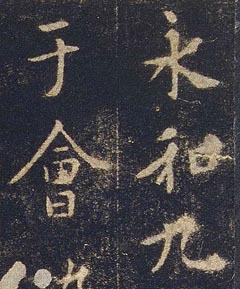 永和九
于會